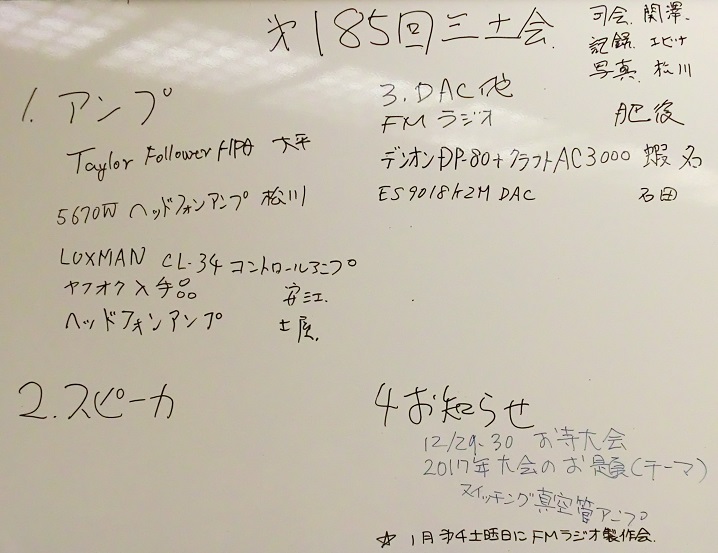 第185回三土会
司会 関澤
記録 エビナ
写真 松川
1. アンプ
Taylor Follower HPA 大平
5670W ヘッドフォンアンプ 松川
LUXMAN CL-34 コントロールアンプ
ヤフオク入手品 安江
ヘッドフォンアンプ 土屋
3. DAC他
FMラジオ 肥後
デンオンDP-80+クラフトAC3000 蝦名
ES9018K2M DAC 石田
2. スピーカ
4 お知らせ
12/29-30 お寺大会
2017年大会のお題(テーマ)
スイッチング真空管アンプ
☆ 1月第4土曜日にFMラジオ製作会